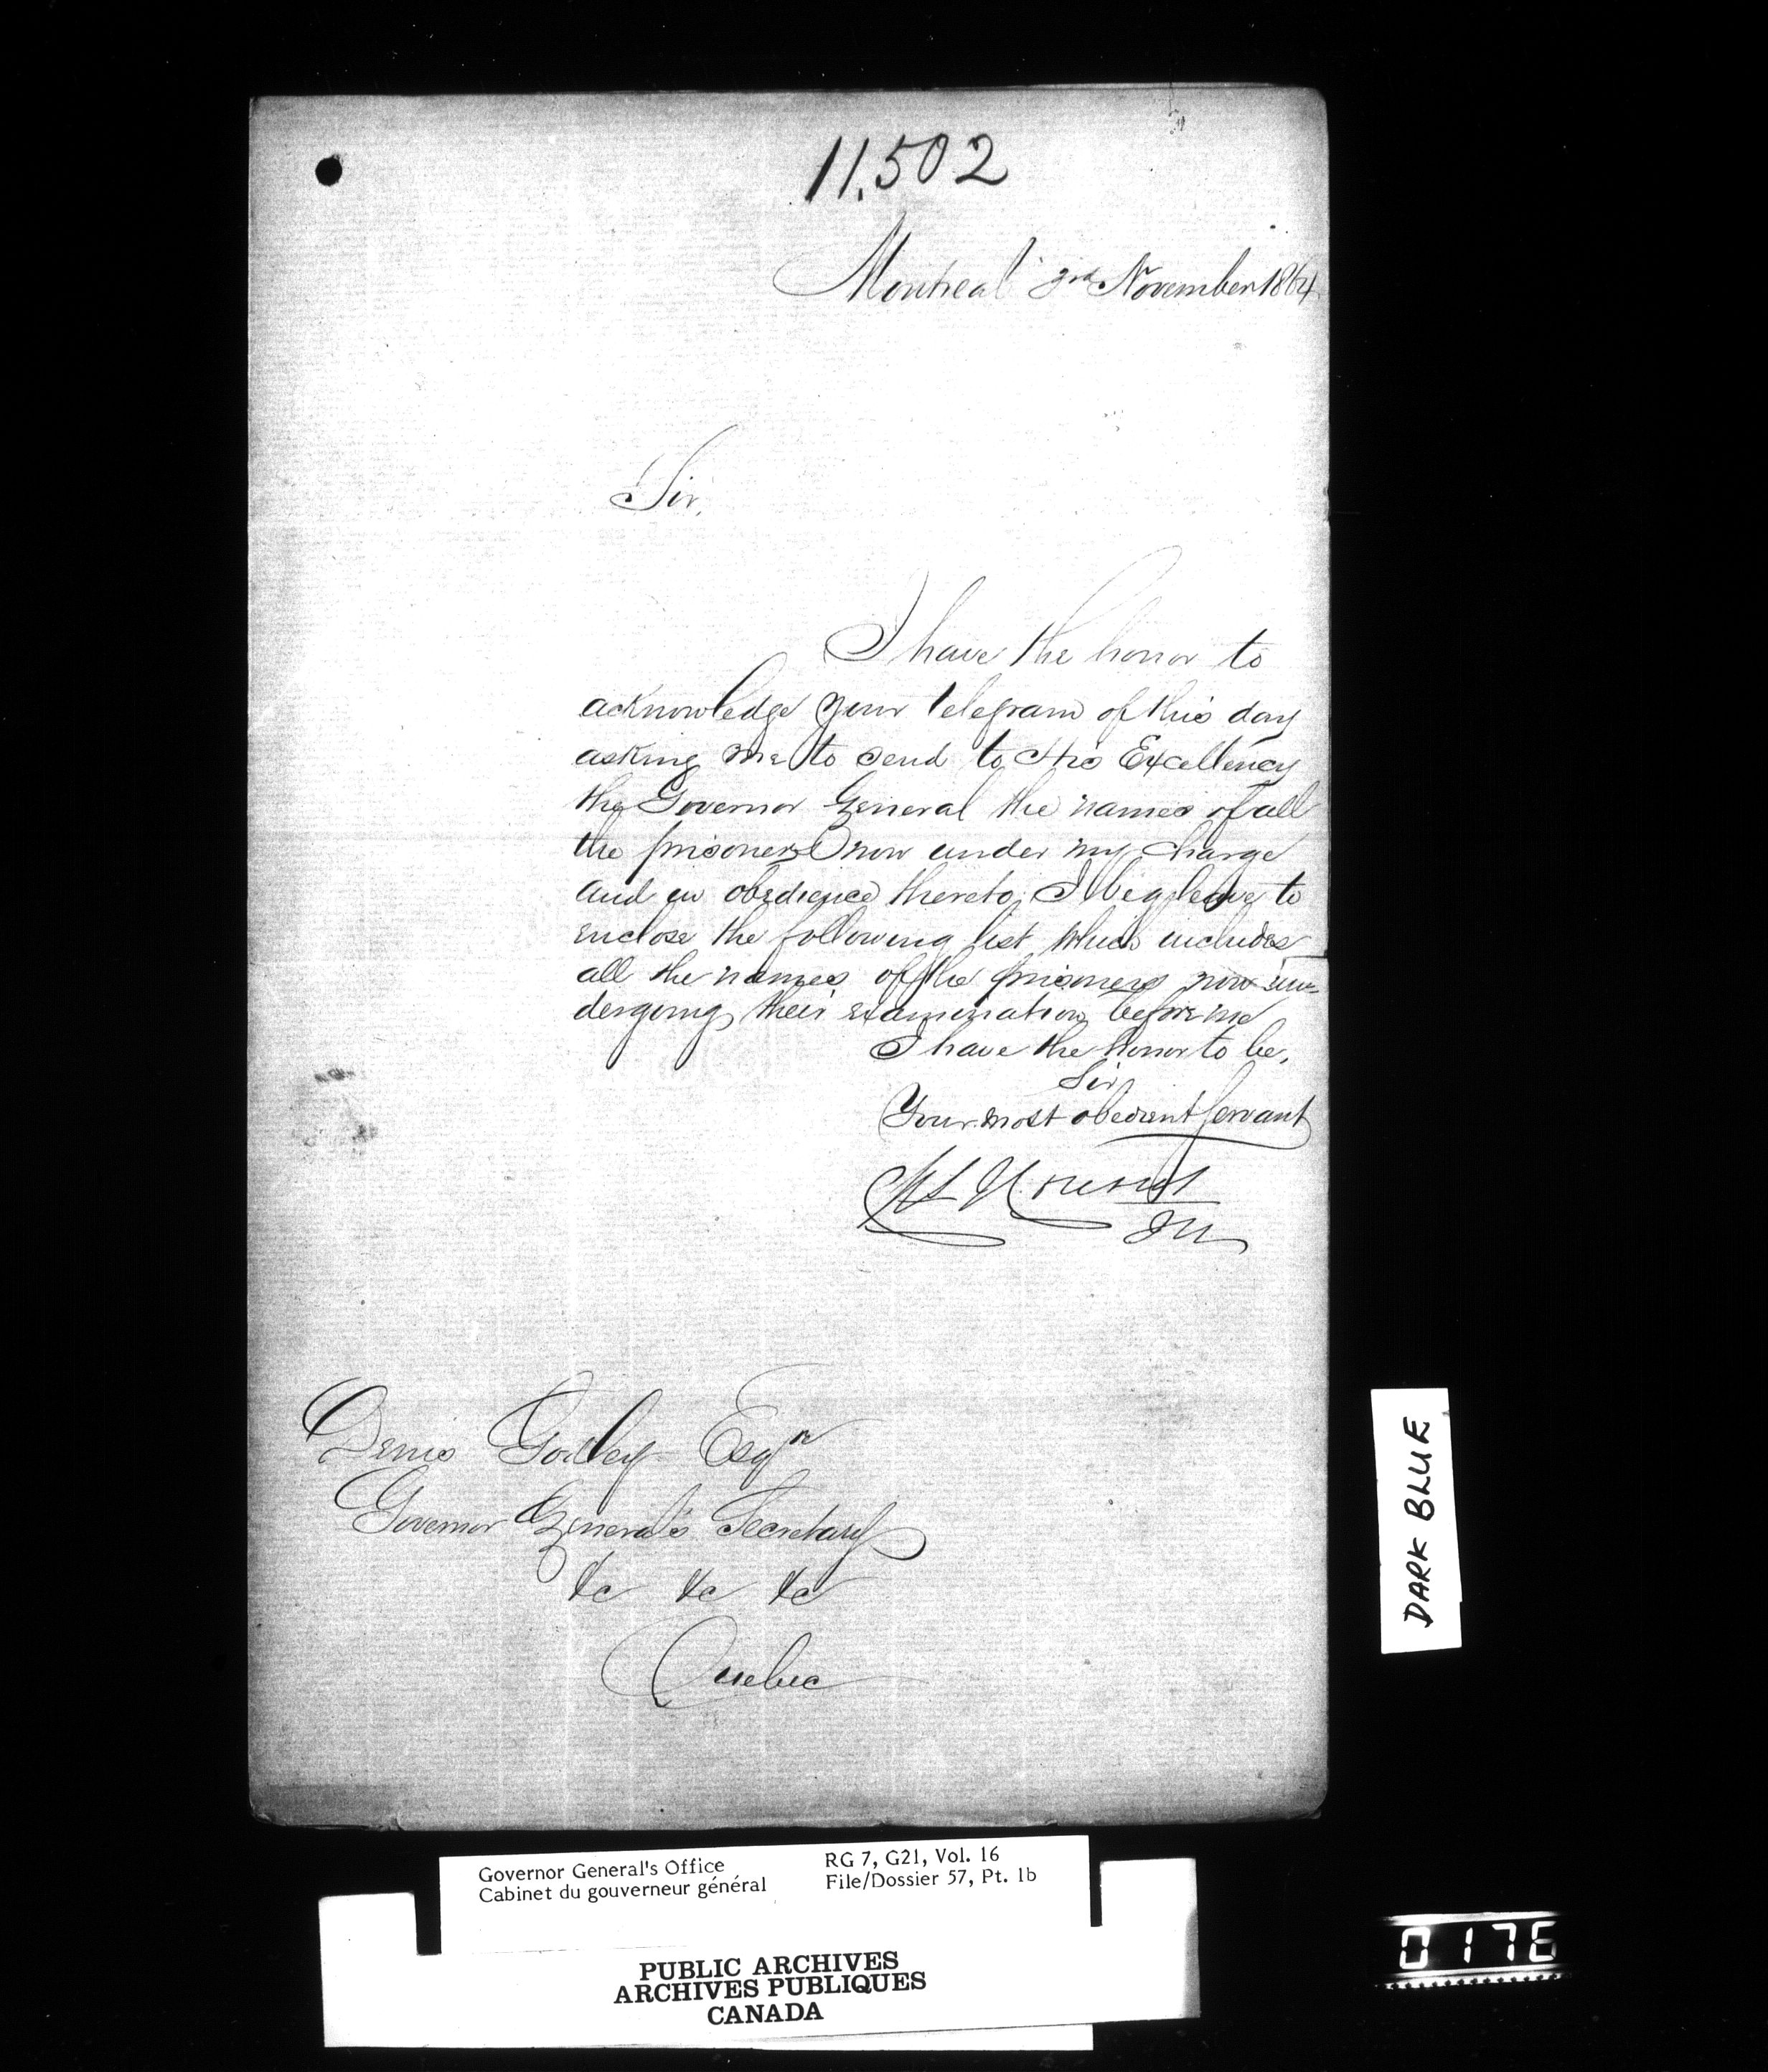 11.502
Montreal 3rd November 1864
Sir,
I have the honor to
acknowledge your telegram of this day
asking me to send to His Excellency
the Governor General the names of all
the prisoners now under my charge
and in obedience thereto, I beg leave to
enclose the following list which includes
all the names of the prisoners now un-
dergoing their examination before me
I have the honor to be,
Sir,
Your most obedient servant
Denis Godley Esqre
Governor General's Secretary
&c &c &c
Quebec
DARK BLUE
Governor General's Office RG 7, G21, Vol. 16
Cabinet du gouverneur général File/Dossier 57, Pt. 1b
PUBLIC ARCHIVES
ARCHIVES PUBLIQUES
CANADA
0176